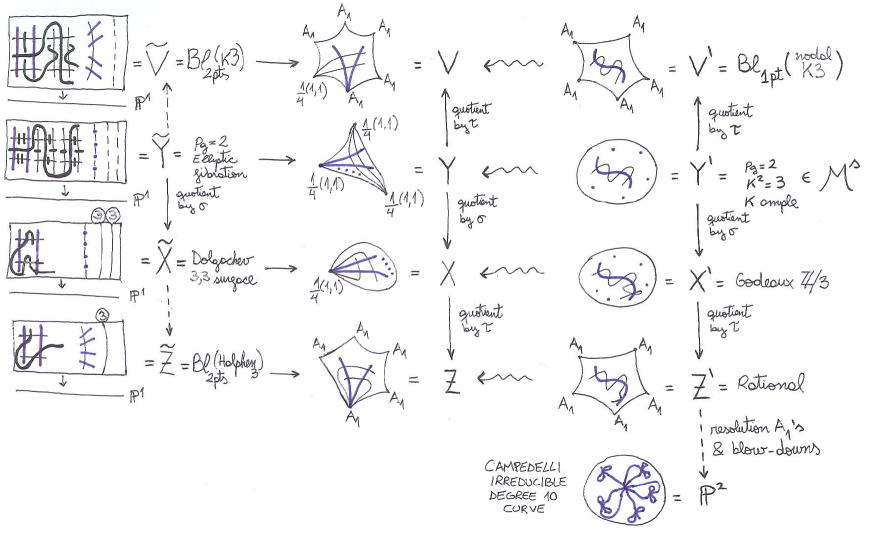 A₁
A₁ A₁
A₁
1/4(1,1) A₁
= Ṽ = Bl(K3)
2pts
→ = V
A₁ A₁
A₁ A₁
A₁
= V' = Bl₁pt(nodal
K3)
P¹
quotient
by τ
quotient
by τ
= Ỹ = Pg=2
Elliptic
fibration
1/4(1,1)
1/4(1,1)
1/4(1,1)
= Y
= Y' = Pg=2
K²=3 ∈ Mˢ
K ample
P¹
quotient
by σ
quotient
by σ
quotient
by σ
3 3
= X̃ = Dolgachev
3,3 surface
1/4(1,1)
= X
= X' = Godeaux Z/3
P¹
quotient
by τ
quotient
by τ
3
= Z̃ = Bl(Halphen)
2pts 3
A₁
A₁ A₁
A₁
A₁
= Z
A₁ A₁
A₁ A₁
A₁
= Z' = Rational
P¹
resolution A₁'s
& blow-downs
CAMPEDELLI
IRREDUCIBLE
DEGREE 10
CURVE
= P²